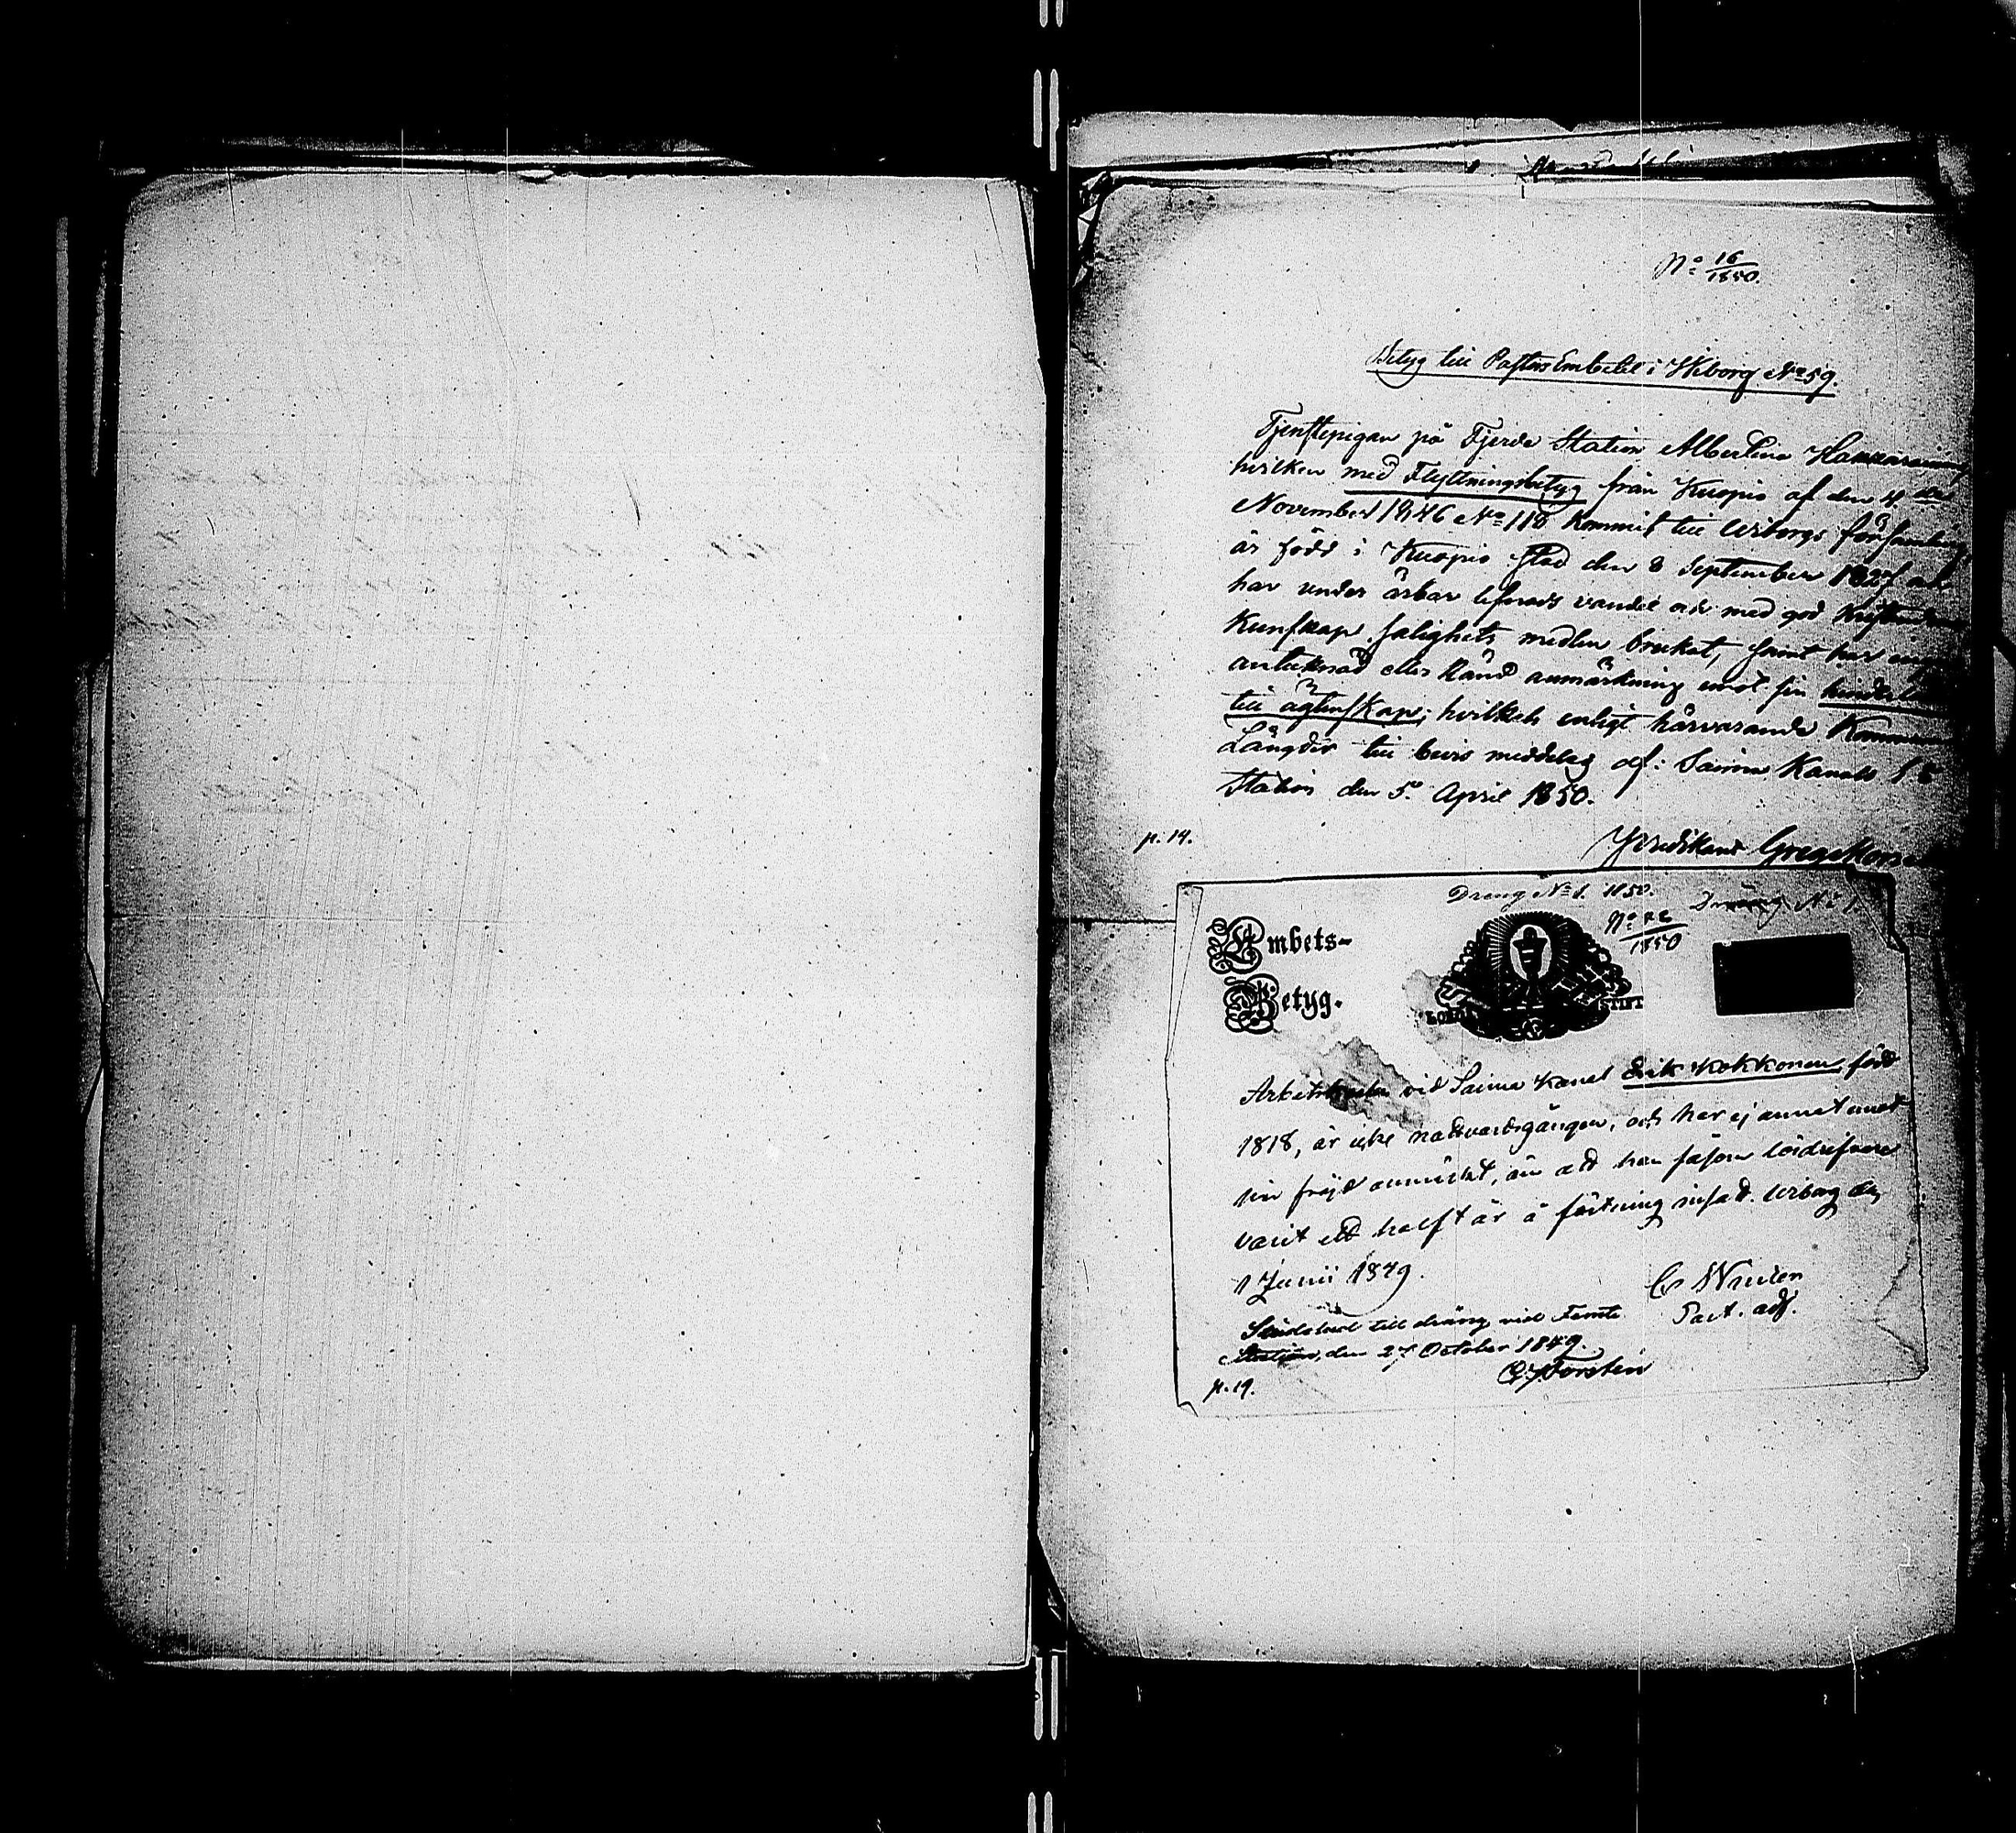 No 16/1850.
Betyg till Pastors Embetet i Wiborg No 59.
Tjenstepigan på Fjerde Station Albertina
hvilken med Flyttningsbetyg från Kuopio af den 4
November 1846 No 118 kommit till Wiborgs församling
är född i Kuopio stad den 8 September 1827 och
har under ärbar lefnads vandel och med god
Kunskap salighets medlen brukat, samt har
antecknad eller känd anmärkning emot sin
till ägtenskap; hvilket enligt härvarande
Längder till bevis meddelas af: Saima Kanals
Station den 5 April 1850.
p. 14.
Predikant
Dreng No 1. 1850.
Dräng No 1
No 22/1850
Embets-
Betyg.
Arbetskarlen vid Saima Kanal Erik Kokkonen, född
1818, är icke nattvardsgången, och har ej annat emot
sin frejd anmärkt, än att han såsom lösdrifvare
varit ett halft år å fästning insatt. Wiborg den
1 Junii 1849.
Past. adj.
till dräng vid Femte
Station, den 27 October 1849.
p. 19.